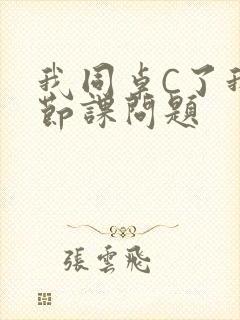 我同桌C了我
節課問題
張雲飛